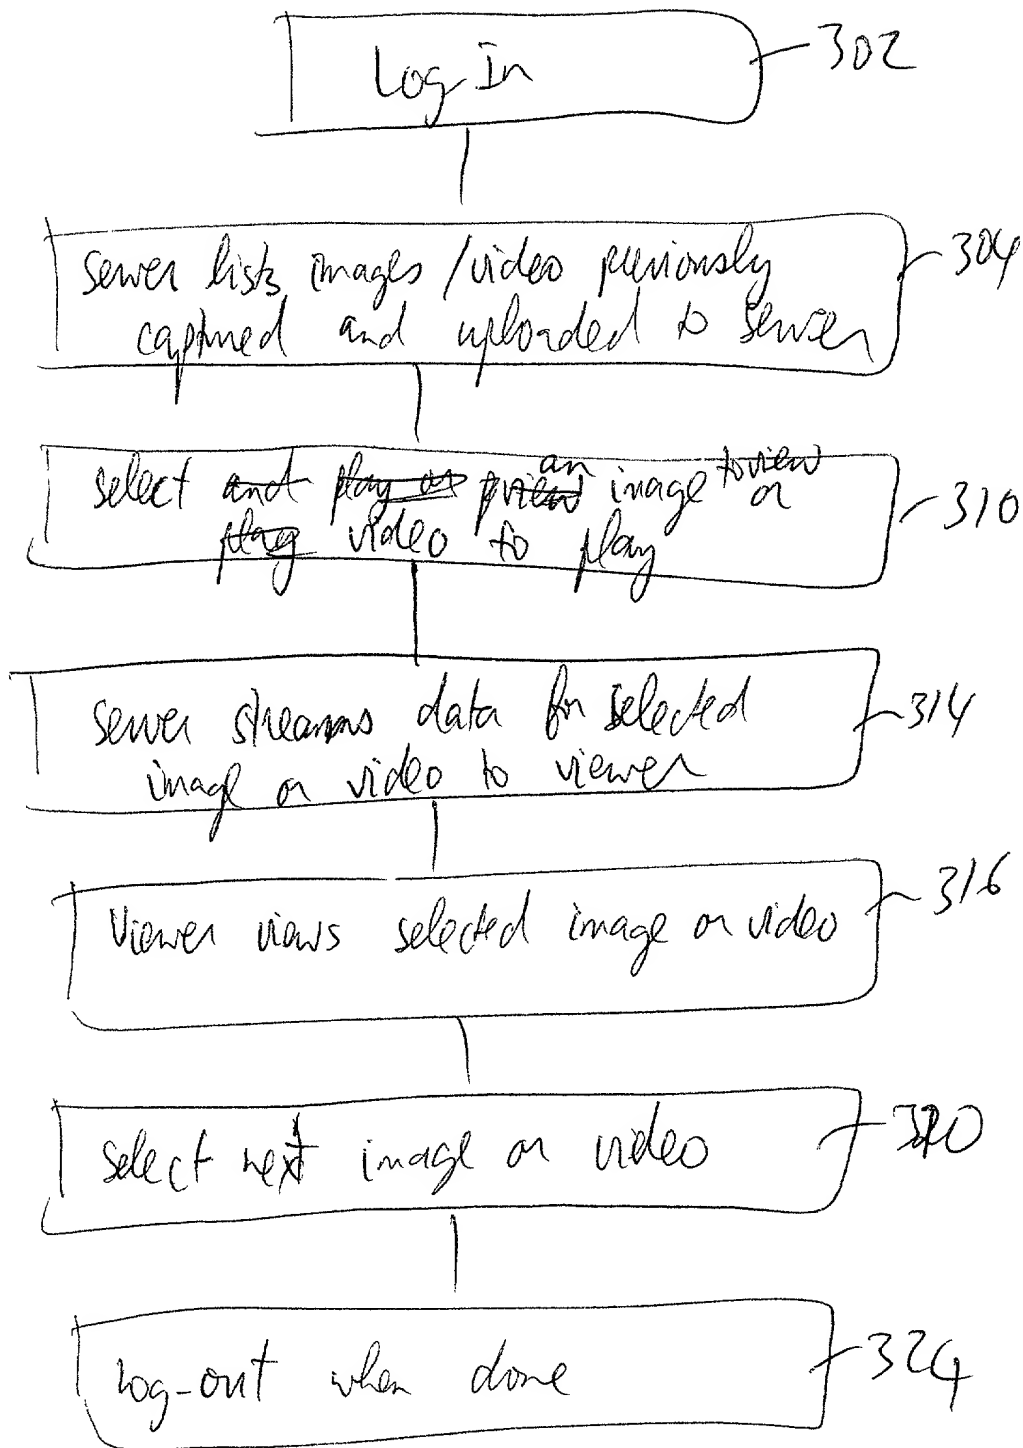 Log-In
302
server lists images / video previously
captured and uploaded to server
304
select and play or view an image to view or
play video to play
310
server streams data for selected
image or video to viewer
314
Viewer views selected image or video
316
select next image or video
320
log-out when done
324